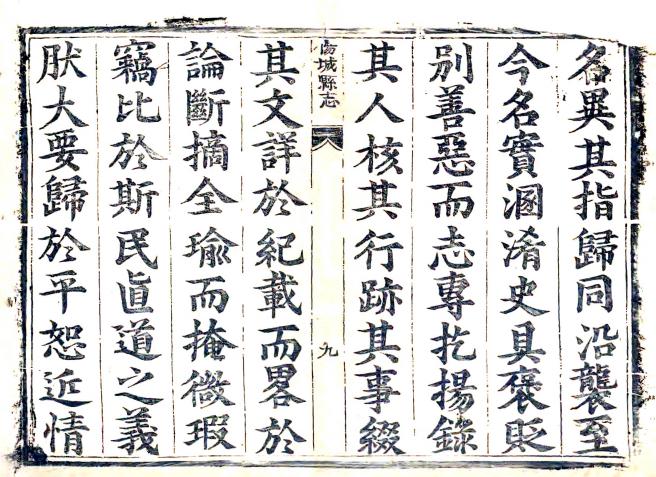 名異其指歸同沿襲至
今名實溷淆史具褒貶
別善惡而志專扢揚錄
其人核其行跡其事綴
城縣志
九
其文詳於紀載而畧於
論斷摘全瑜而掩微瑕
竊比於斯民直道之義
肰大要歸於平恕近情